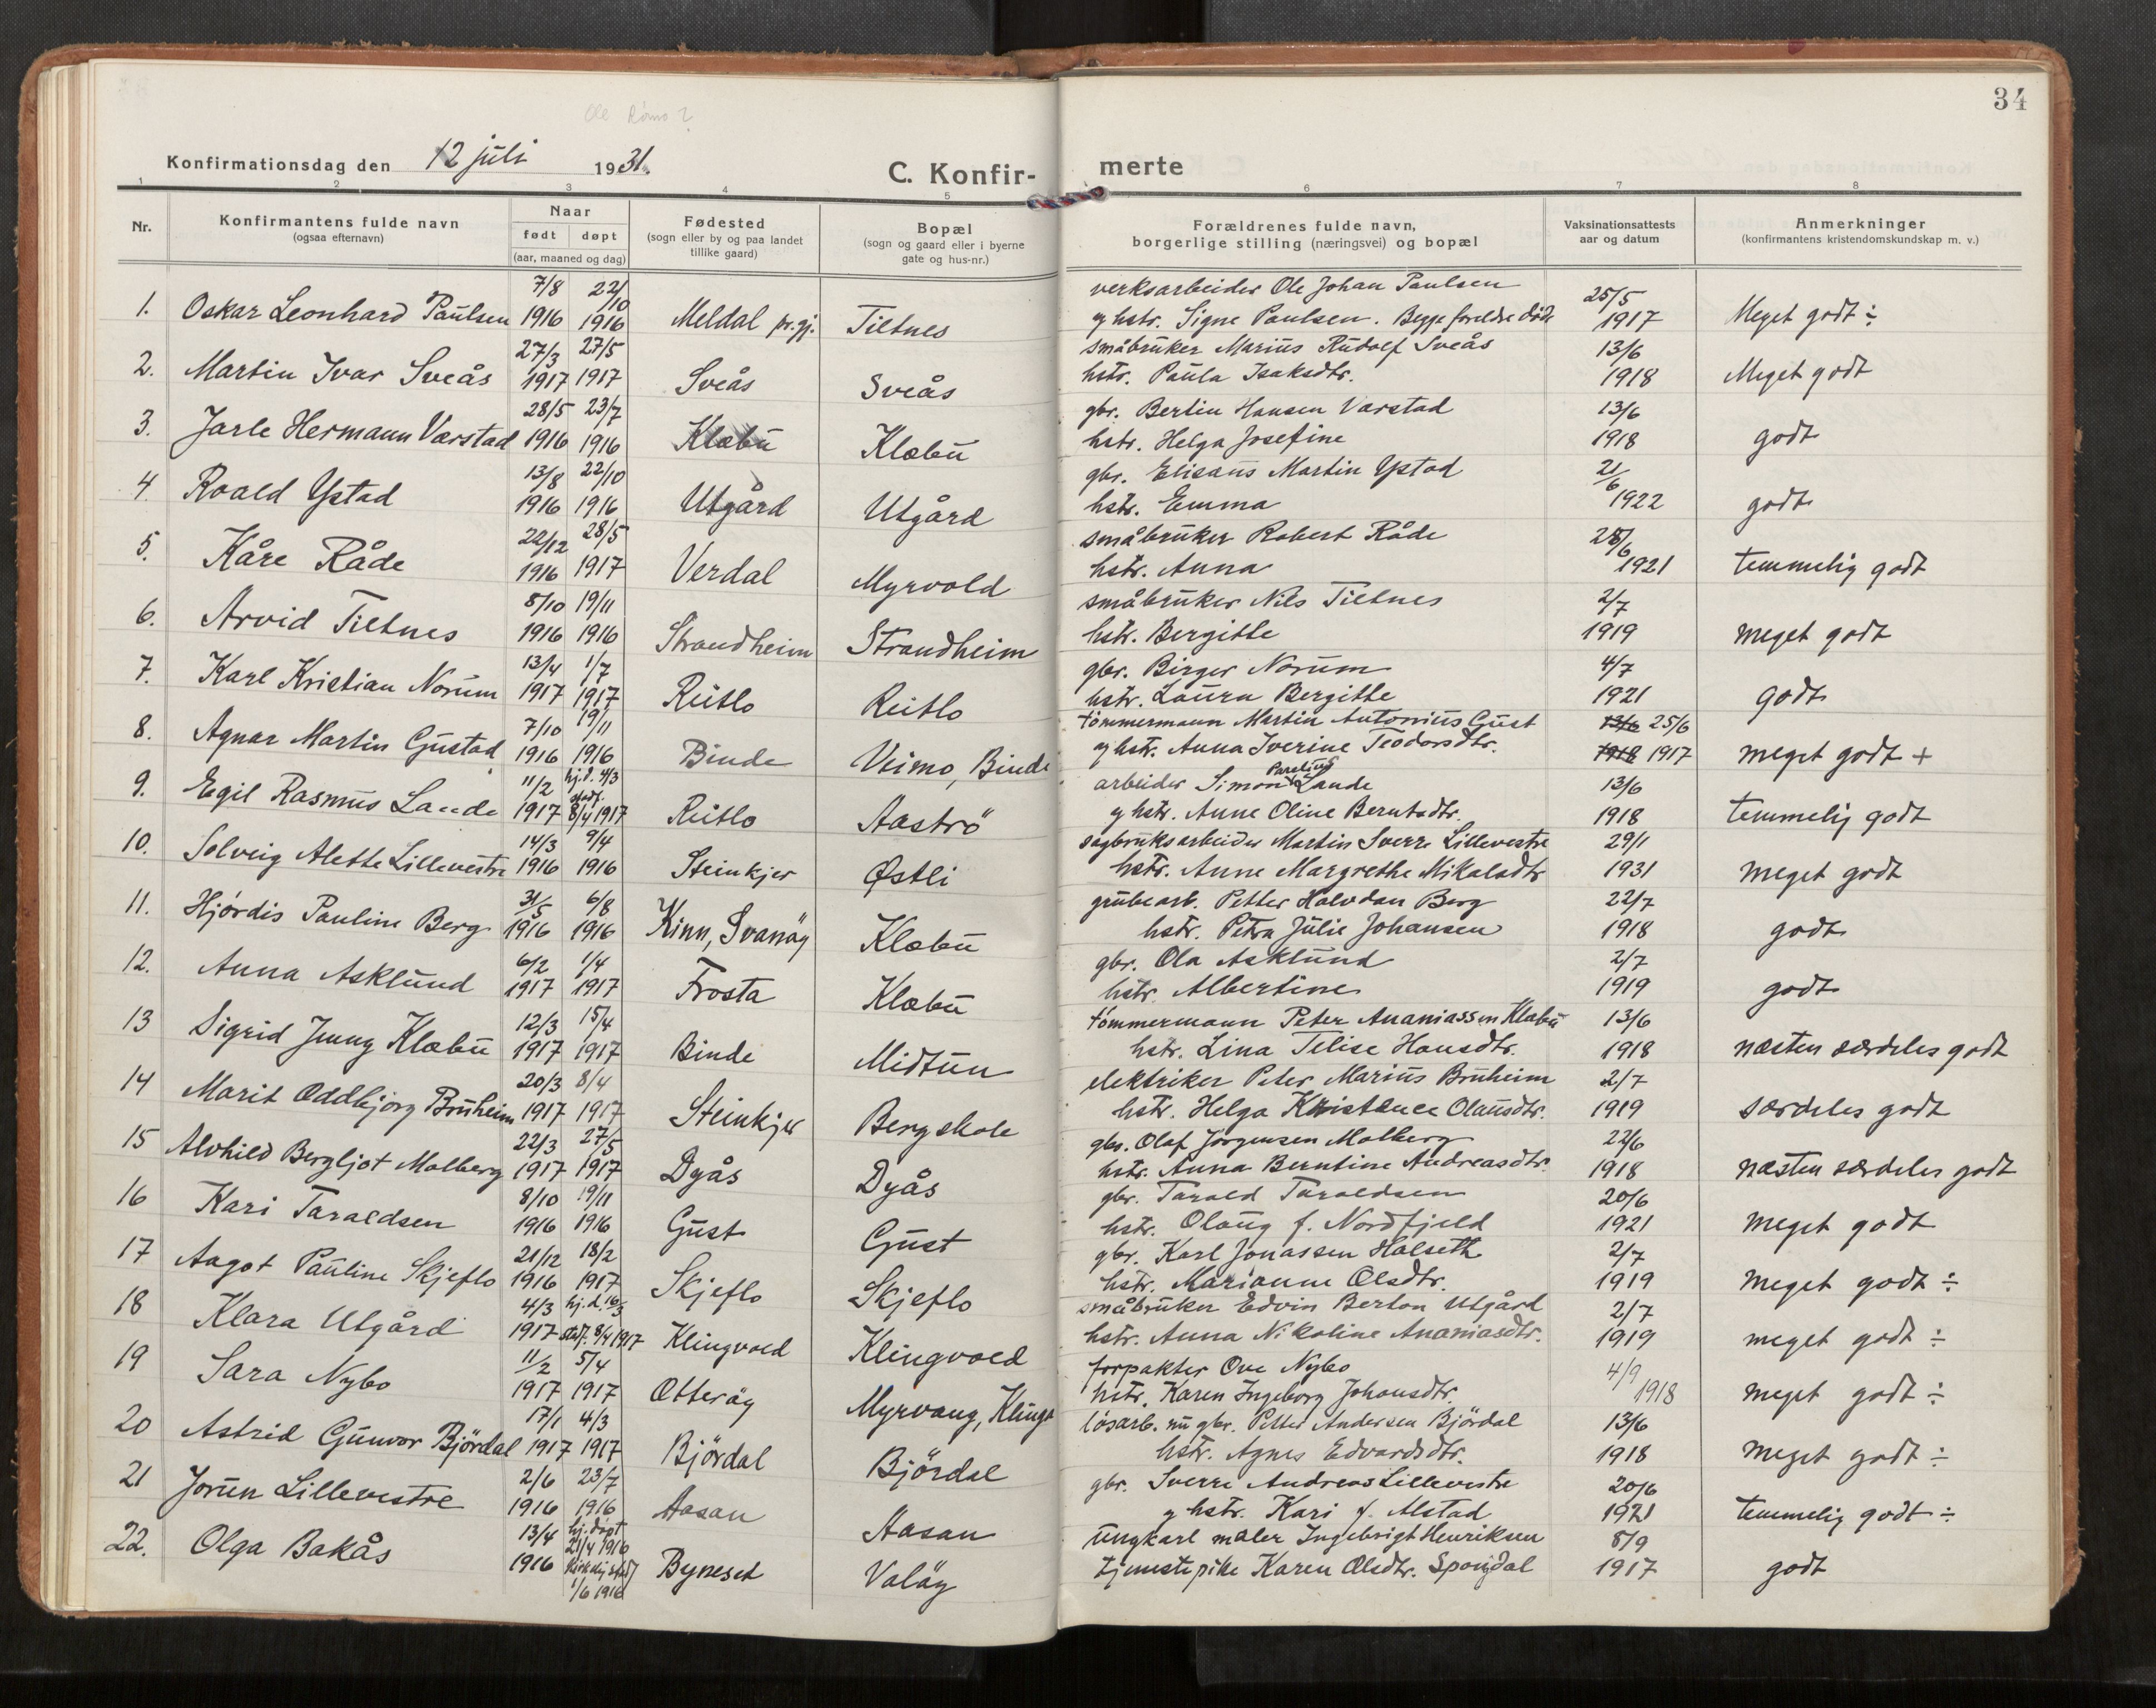 34
Konfirmationsdag den 12 juli 1931.
C. Konfir- merte
1 2 3 4 5 6 7 8
Nr. | Konfirmantens fulde navn (ogsaa efternavn) | Naar født døpt (aar, maaned og dag) | Fødested (sogn eller by og paa landet tillike gaard) | Bopæl (sogn og gaard eller i byerne gate og hus-nr.) | Forældrenes fulde navn, borgerlige stilling (næringsvei) og bopæl | Vaksinationsattests aar og datum | Anmerkninger (konfirmantens kristendomskundskap m. v.)
7/8 22/10 verksarbeider Ole Johan Paulsen 25/5
1. Oskar Leonhard Paulsen 1916 1916 Meldal pr.gj. Tiltnes og hstr. Signe Paulsen. Begge foreldre døde 1917 Meget godt ÷
27/3 27/5 småbruker Marius Rudolf Sveås 13/6
2. Martin Ivar Sveås 1917 1917 Sveås Sveås hstr. Paula Isaksdtr. 1918 Meget godt
28/5 23/7 gbr. Bertin Hansen Varstad 13/6
3. Jarle Hermann Varstad 1916 1916 Klæbu Klæbu hstr. Helga Josefine 1918 godt
13/8 22/10 gbr. Elisæus Martin Ystad 21/6
4. Roald Ystad 1916 1916 Utgård Utgård hstr. Emma 1922 godt
22/12 28/5 småbruker Robert Råde 28/6
5. Kåre Råde 1916 1917 Verdal Myrvold hstr. Anna 1921 temmelig godt
8/10 19/11 småbruker Nils Tiltnes 2/7
6. Arvid Tiltnes 1916 1916 Strandheim Strandheim hstr. Bergitte 1919 meget godt
13/4 1/7 gbr. Birger Norum 4/7
7. Karl Kristian Norum 1917 1917 Reitlo Reitlo hstr. Laura Bergitte 1921 godt
7/10 19/11 tømmermann Martin Antonius Gust 13/6 25/6
8. Agnar Martin Gustad 1916 1916 Binde Veimo, Binde og hstr. Anna Iverine Teodorsdtr. 1918 1917 meget godt +
11/2 hj.d. 4/3 arbeider Simon Parelius Lande 13/6
9. Egil Rasmus Lande 1917 stadf. 8/4 1917 Reitlo Aaströ og hstr. Anne Oline Berntsdtr. 1918 temmelig godt
14/3 9/4 sagbruksarbeider Martin Sverre Lillevestre 29/1
10. Solveig Alette Lillevestre 1916 1916 Steinkjer Østli hstr. Anne Margrethe Mikalsdtr 1931 meget godt
31/5 6/8 grubearb. Petter Halvdan Berg 22/7
11. Hjørdis Pauline Berg 1916 1916 Kinn, Svanøy Klæbu hstr. Petra Julie Johansen 1918 godt
6/2 1/4 gbr. Ola Asklund 2/7
12. Anna Asklund 1917 1917 Frosta Klæbu hstr. Albertine 1919 godt
12/3 15/4 tømmermann Peter Ananiassen Klæbu 13/6
13 Sigrid Jenny Klæbu 1917 1917 Binde Midtun hstr. Lina Telise Hansdtr. 1918 næsten særdeles godt
20/3 8/4 elektriker Peter Marius Bruheim 2/7
14 Marit Oddbjørg Bruheim 1917 1917 Steinkjer Bergskole hstr. Helga Kristence Olausdtr. 1919 særdeles godt
22/3 27/5 gbr. Olaf Jørgensen Molberg 22/6
15 Alvhild Bergljot Molberg 1917 1917 Dyås Dyås hstr. Anna Berntine Andreasdtr. 1918 næsten særdeles godt
8/10 19/11 gbr. Tarald Taraldsen 20/6
16 Kari Taraldsen 1916 1916 Gust Gust hstr. Olaug f. Nordfjeld 1921 meget godt
21/12 18/2 gbr. Karl Jonassen Halseth 2/7
17 Aagot Pauline Skjeflo 1916 1917 Skjeflo Skjeflo hstr. Marianne Olsdtr. 1919 meget godt ÷
4/3 hj.d. 16/3 småbruker Edvin Berton Utgård 2/7
18 Klara Utgård 1917 stadf. 8/4 1917 Klingvold Klingvold hstr. Anna Nikoline Ananiasdtr. 1919 meget godt ÷
11/2 5/4 forpakter Ove Nybo 4/9
19 Sara Nybo 1917 1917 Otterøy Myrvang, Klinga hstr. Karen Ingeborg Johansdtr. 1918 meget godt ÷
17/1 4/3 løsarb. nu gbr. Petter Andersen Björdal 13/6
20 Astrid Gunvor Björdal 1917 1917 Björdal Björdal hstr. Agnes Edvardsdtr. 1918 meget godt ÷
2/6 23/7 gbr. Sverre Andreas Lillevestre 20/6
21 Jorun Lillevestre 1916 1916 Aasan Aasan og hstr. Kari f. Alstad 1921 temmelig godt ÷
13/4 hj. döpt 21/4 1916 ungkarl maler Ingebrigt Henriksen 8/9
22. Olga Bakås 1916 1/6 1916 Byneset Valöy tjenestepike Karen Olsdtr. Spongdal 1917 godt